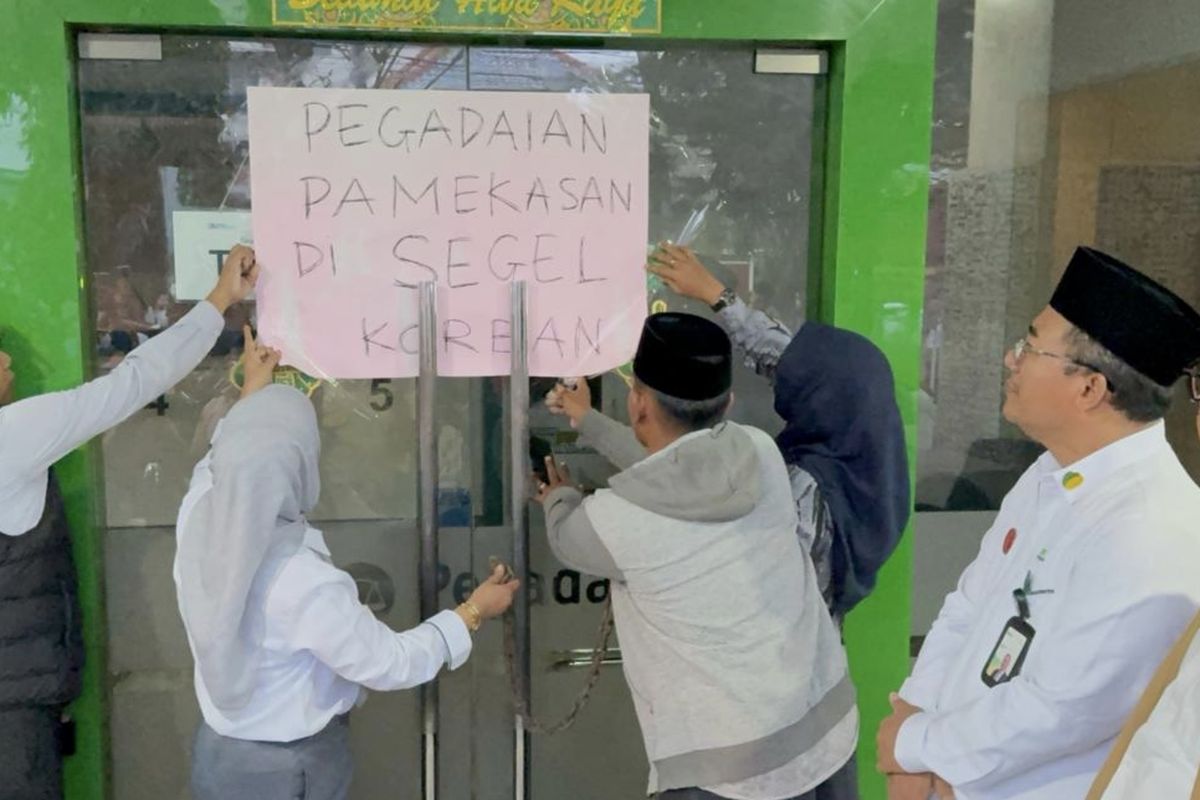 Selamat Hari Raya
PEGADAIAN
PAMEKASAN
Di SEGEL
KORBAN
4
5
Pegada